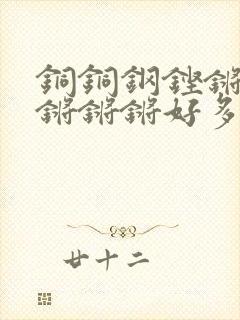 銅銅鋼鏗鏘
鏘鏘鏘好多
廿十二